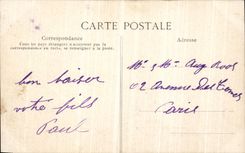 CARTE POSTALE
Correspondance
Tous les pays étrangers n'acceptent pas la
correspondance au recto, se renseigner à la poste.
Adresse
bon baiser
votre fils
Paul
Mr & Mme Aug Roos
Avenue des
Paris